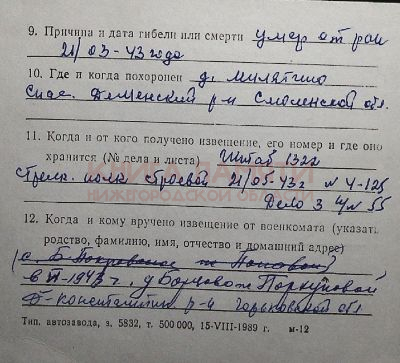 9. Причина и дата гибели или смерти умер от ран
21/03-43 года
10. Где и когда похоронен д. Милятино
Спас. Деменский р-н Смоленской обл.
11. Когда и от кого получено извещение, его номер и где оно
хранится (№ дела и листа) Штаб 1322
стрелк. полк строевой 21/05-43 г N 4-125
Дело 3 N 55
12. Когда и кому вручено извещение от военкомата (указать
родство, фамилию, имя, отчество и домашний адрес)
(с. Б-Покровское
в II-1947 г. д Борцово
Б-Константин р-н Горьковской обл
Тип. автозавода, з. 5832, т. 500 000, 15-VIII-1989 г. м-12
КНИГА ПАМЯТИ
НИЖЕГОРОДСКОЙ ОБЛ